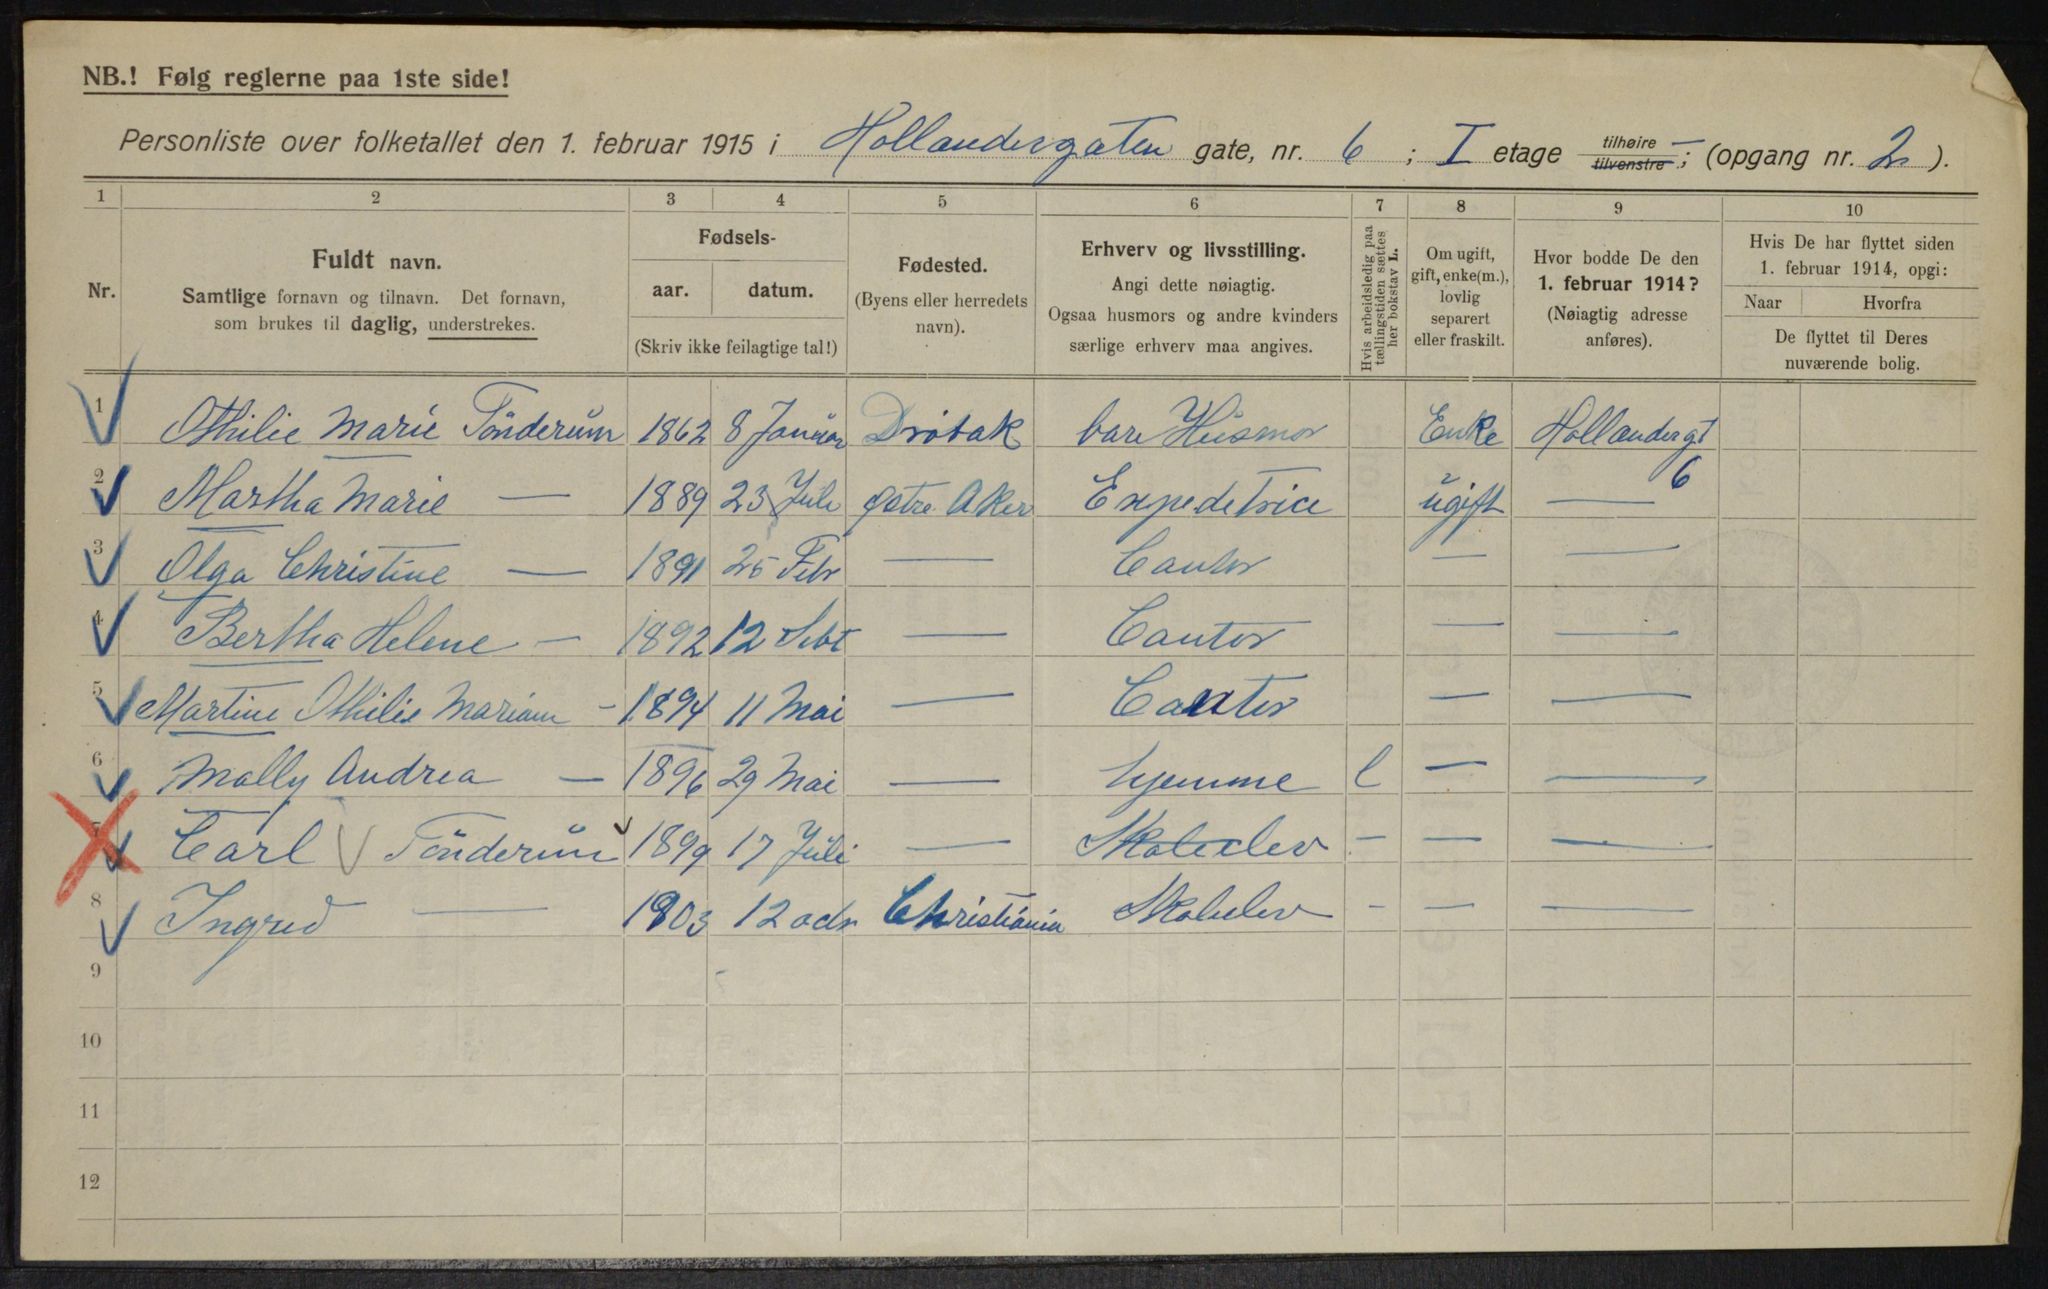 NB.! Følg reglerne paa 1ste side!
Personliste over folketallet den 1. februar 1915 i Hollandergaten gate, nr. 6; I etage tilhøire – tilvenstre; (opgang nr. 2).
1 2 3 4 5 6 7 8 9 10
Nr.
Fuldt navn.
Samtlige fornavn og tilnavn. Det fornavn,
som brukes til daglig, understrekes.
Fødsels-
aar. datum.
(Skriv ikke feilagtige tal!)
Fødested.
(Byens eller herredets
navn).
Erhverv og livsstilling.
Angi dette nøiagtig.
Ogsaa husmors og andre kvinders
særlige erhverv maa angives.
Hvis arbeidsledig paa
tællingstiden sættes
her bokstav L.
Om ugift,
gift, enke(m.),
lovlig
separert
eller fraskilt.
Hvor bodde De den
1. februar 1914?
(Nøiagtig adresse
anføres).
Hvis De har flyttet siden
1. februar 1914, opgi:
Naar Hvorfra
De flyttet til Deres
nuværende bolig.
1 Othilie Marie Tönderum 1862 8 Januar Dröbak bare Husmor Enke Hollandergt 6
2 Martha Marie — 1889 23 Juli Østre Aker Expeditrice ugift —
3 Olga Christine — 1891 25 Febr — Contor — —
4 Bertha Helene — 1892 12 Sebt — Contor — —
5 Martine Othilie Mariam — 1894 11 Mai — Contor — —
6 Mally Andrea — 1896 29 Mai — hjemme l — —
7 Carl Tönderum 1899 17 Juli — Skoleelev — — —
8 Ingrid — 1903 12 Christiania Skolelev — — —
9
10
11
12